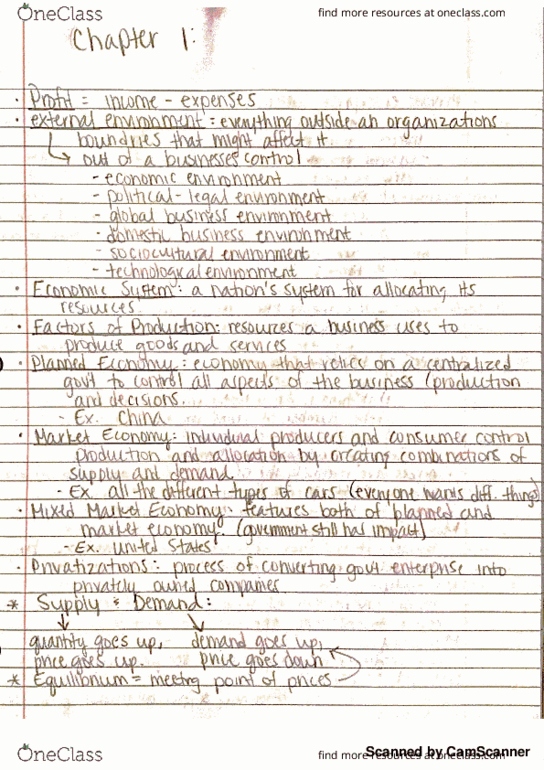 OneClass
find more resources at oneclass.com
Chapter 1:
· Profit = income - expenses
· external environment: everything outside an organizations
boundries that might affect it
out of a businesses control
- economic environment
- political-legal environment
- global business environment
- domestic business environment
- sociocultural environment
- technological environment
· Economic System: a nation's system for allocating its
resources.
· Factors of Production: resources a business uses to
produce goods and services
· Planned Economy: economy that relies on a centralized
govt to control all aspects of the business (production
and decisions.
- Ex. China
· Market Economy: individual producers and consumer control
production and allocation by creating combinations of
supply and demand
- Ex. all the different types of cars (everyone wants diff. things)
· Mixed Market Economy: features both of planned and
market economy. (government still has impact)
- Ex. United States
· Privatizations: process of converting govt enterprise into
privately owned companies
* Supply & Demand:
quantity goes up, demand goes up,
price goes up. price goes down
* Equilibrium = meeting point of prices
OneClass
find more resources at oneclass.com
Scanned by CamScanner